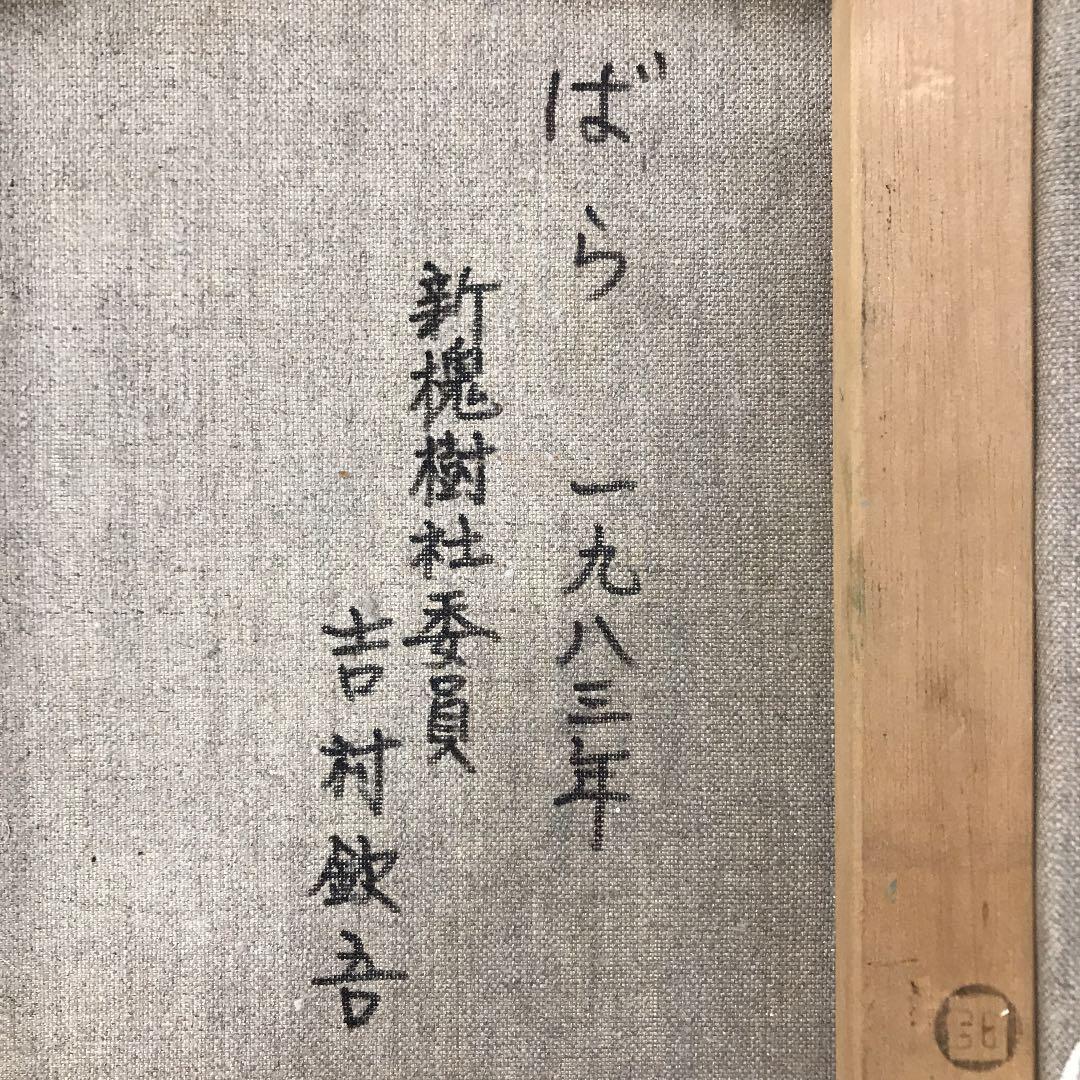 ばら 一九八三年
新槐樹社委員
吉村欽吾